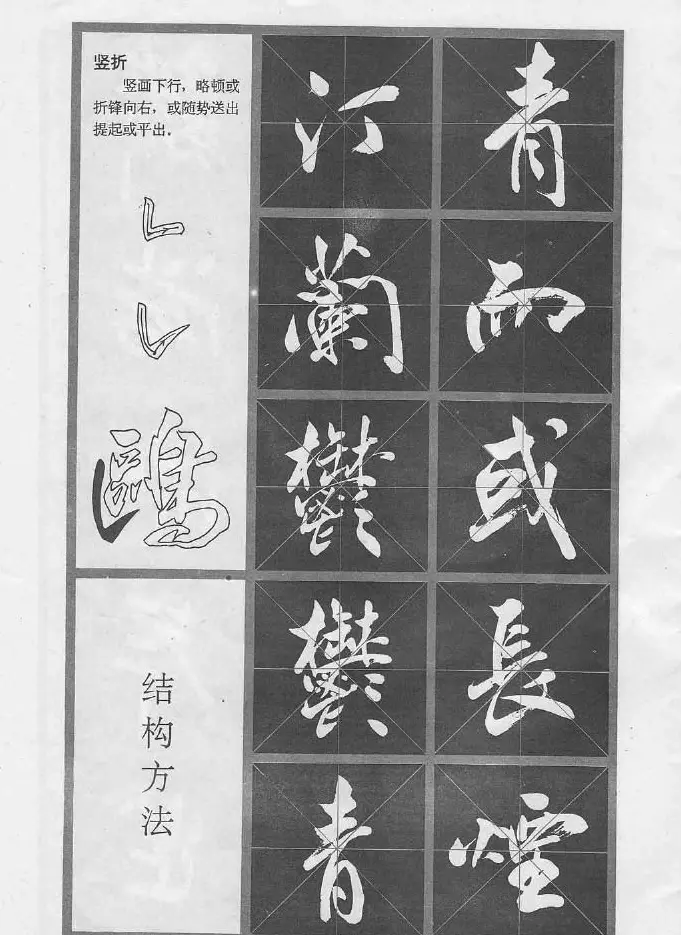 竖折
竖画下行，略顿或
折锋向右，或随势送出
提起或平出．
鷗
结构方法
汀蘭鬱鬱青
青而或長煙